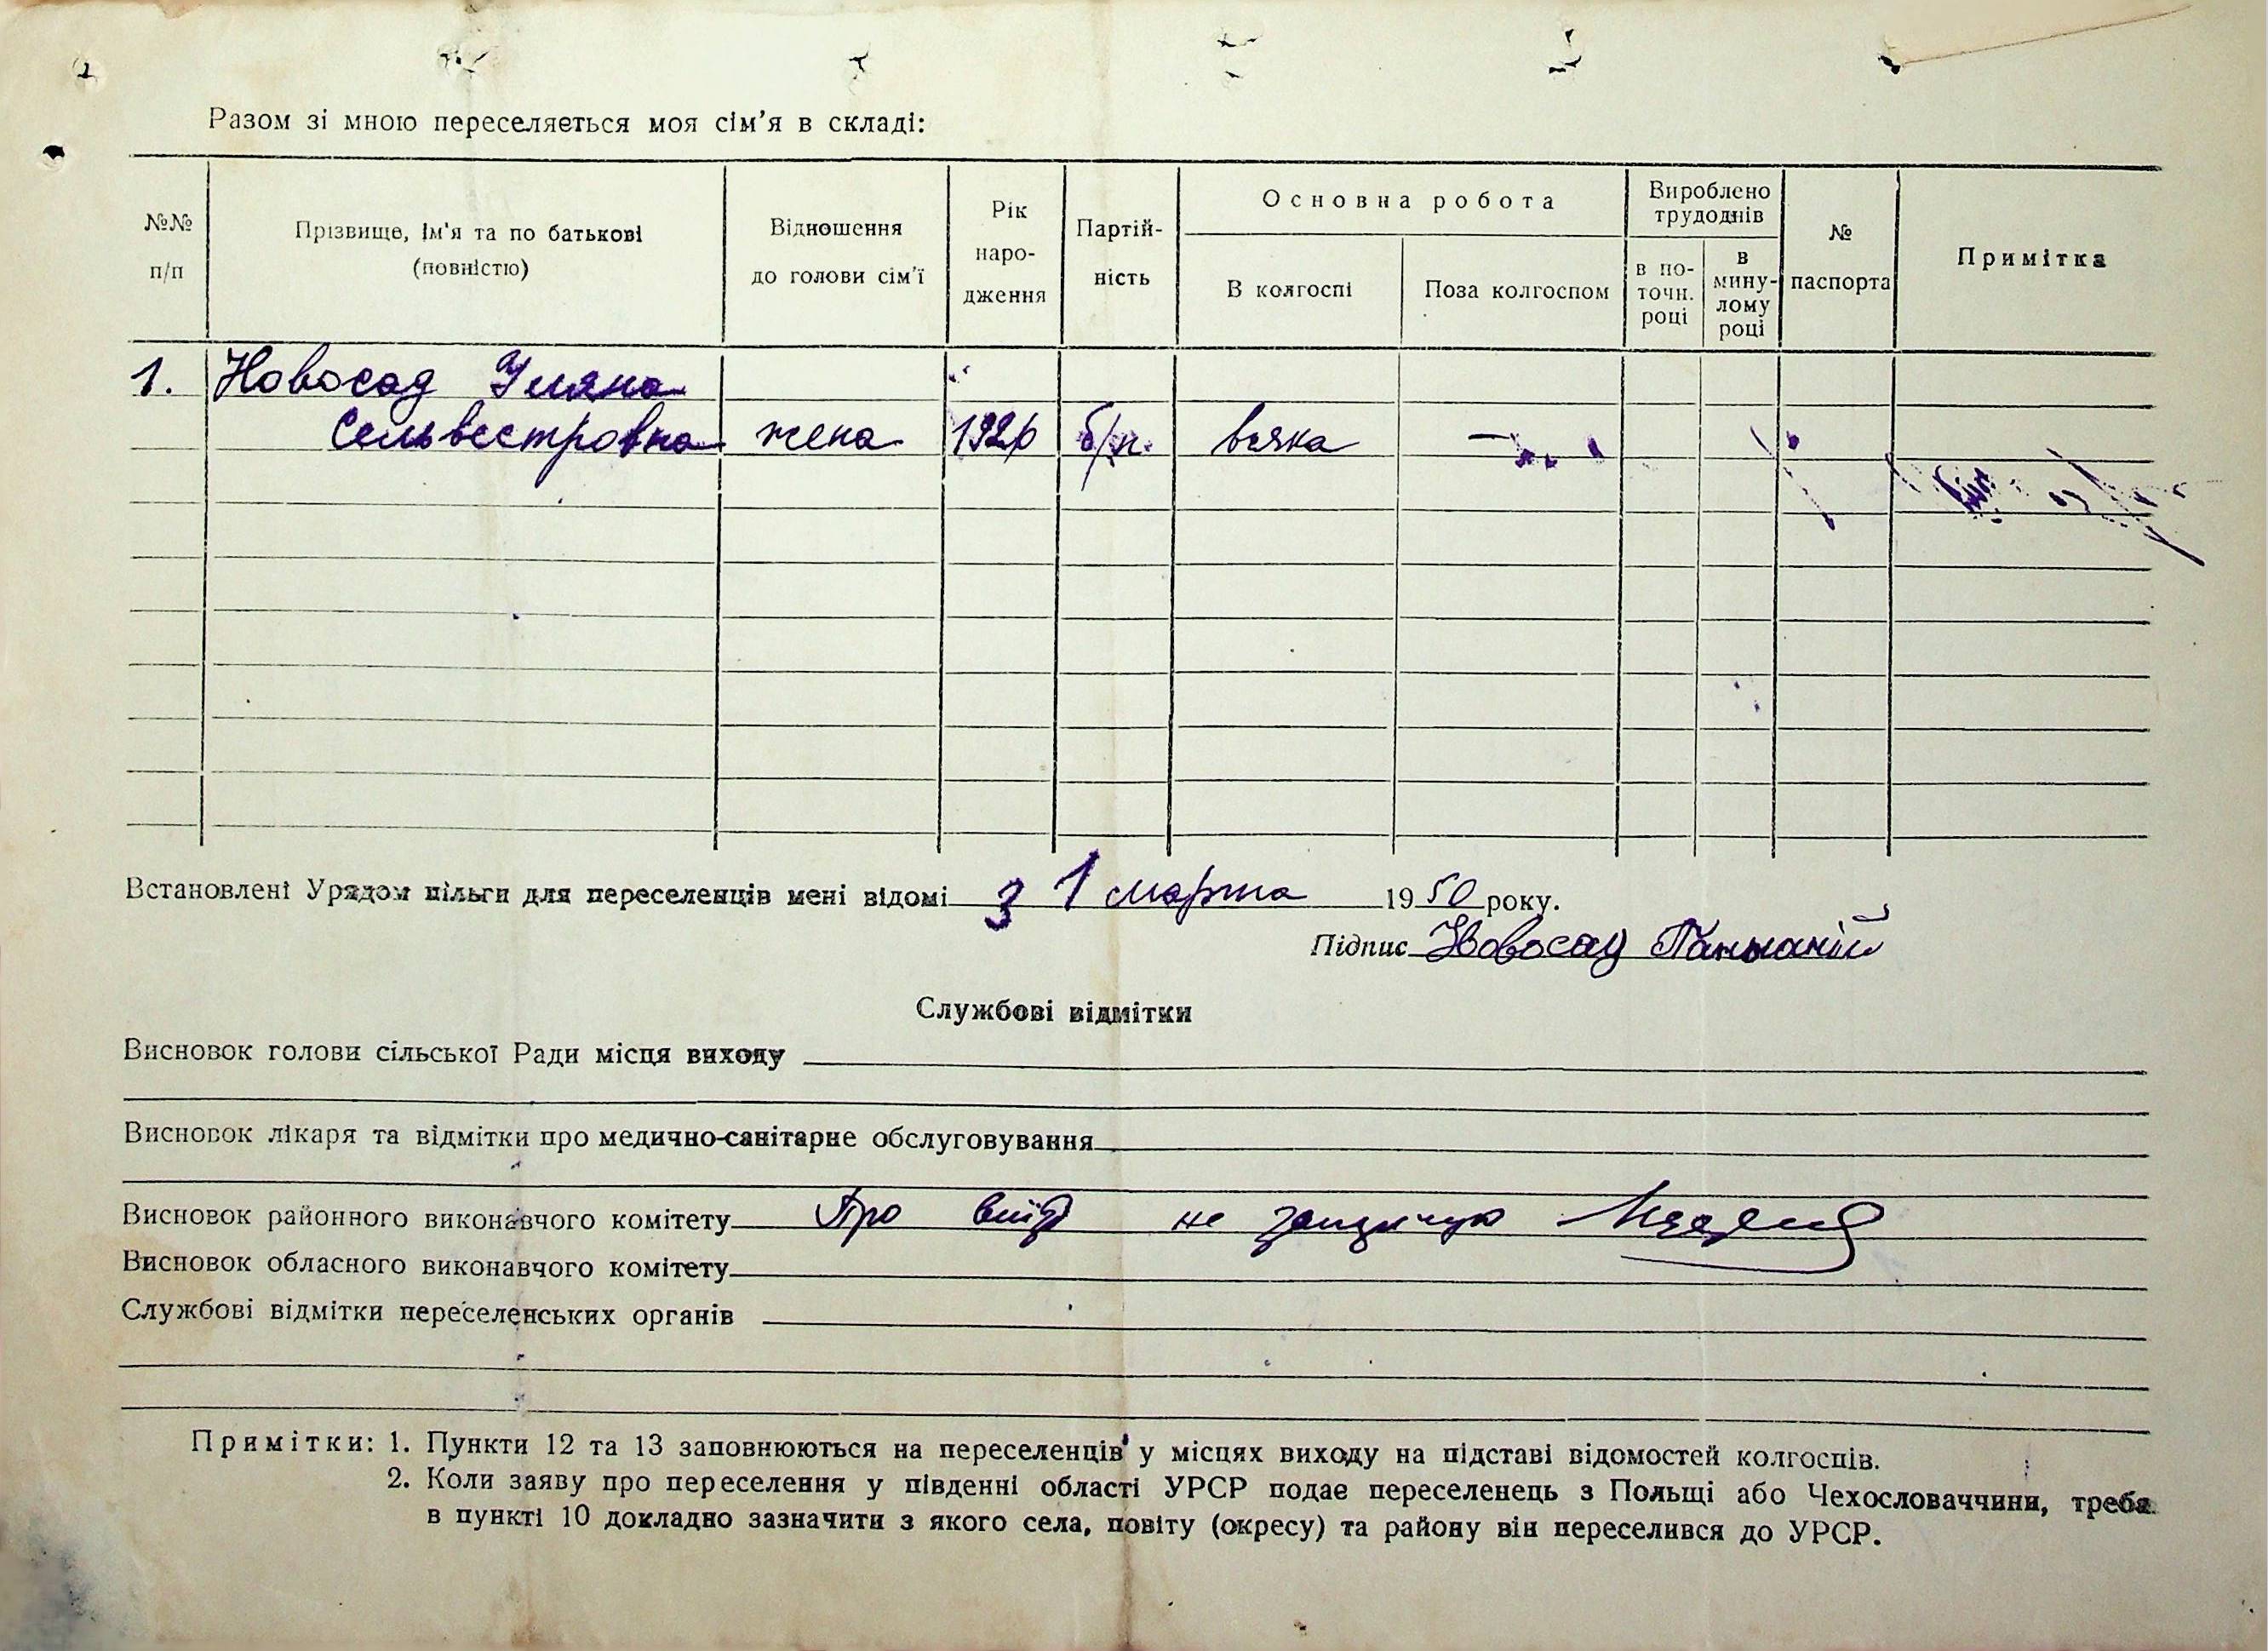 Разом зі мною переселяеться моя сім'я в складі:
№№ п/п
Прізвище, ім'я та по батькові (повністю)
Відношення до голови сім'ї
Рік народження
Партійність
Основна робота
В колгоспі
Поза колгоспом
Вироблено трудоднів
в поточн. році
в минулому році
№ паспорта
Примітка
1. Новосад Уляна
Сельвестровна жена 192 б/п. всяка —
Встановлені Урядом пільги для переселенців мені відомі З 1 марта 1950 року.
Підпис Новосад
Службові відмітки
Висновок голови сільської Ради місця виходу
Висновок лікаря та відмітки про медично-санітарне обслуговування
Висновок районного виконавчого комітету Про виїзд не
Висновок обласного виконавчого комітету
Службові відмітки переселенських органів
Примітки: 1. Пункти 12 та 13 заповнюються на переселенців у місцях виходу на підставі відомостей колгоспів.
2. Коли заяву про переселення у південні області УРСР подае переселенець з Польщі або Чехословаччини, треба
в пункті 10 докладно зазначити з якого села, повіту (окресу) та району він переселився до УРСР.